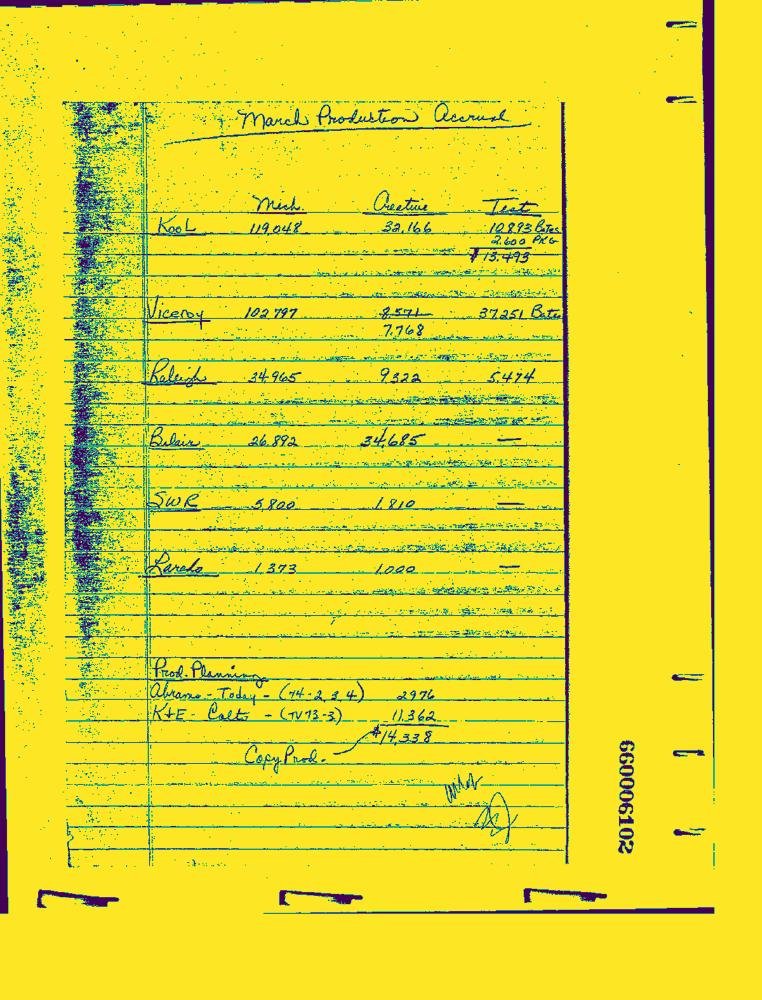 March Production Accrual
Mech. Creative Test
KooL 119,048 32,166 10,893 Bates
2,600 PKG
$13,493
Viceroy 102,797 8,571 37,251 Bates
7,768
Raleigh 34,965 9,322 5,474
Belair 26,892 34,685 —
SWR 5,800 1,810 —
Laredo 1,373 1,000 —
Prod. Planning
Abrams - Today - (74-2, 3, 4) 2976
K+E - Colts - (TV73-3) 11,362
$14,338
Copy Prod.
660006102